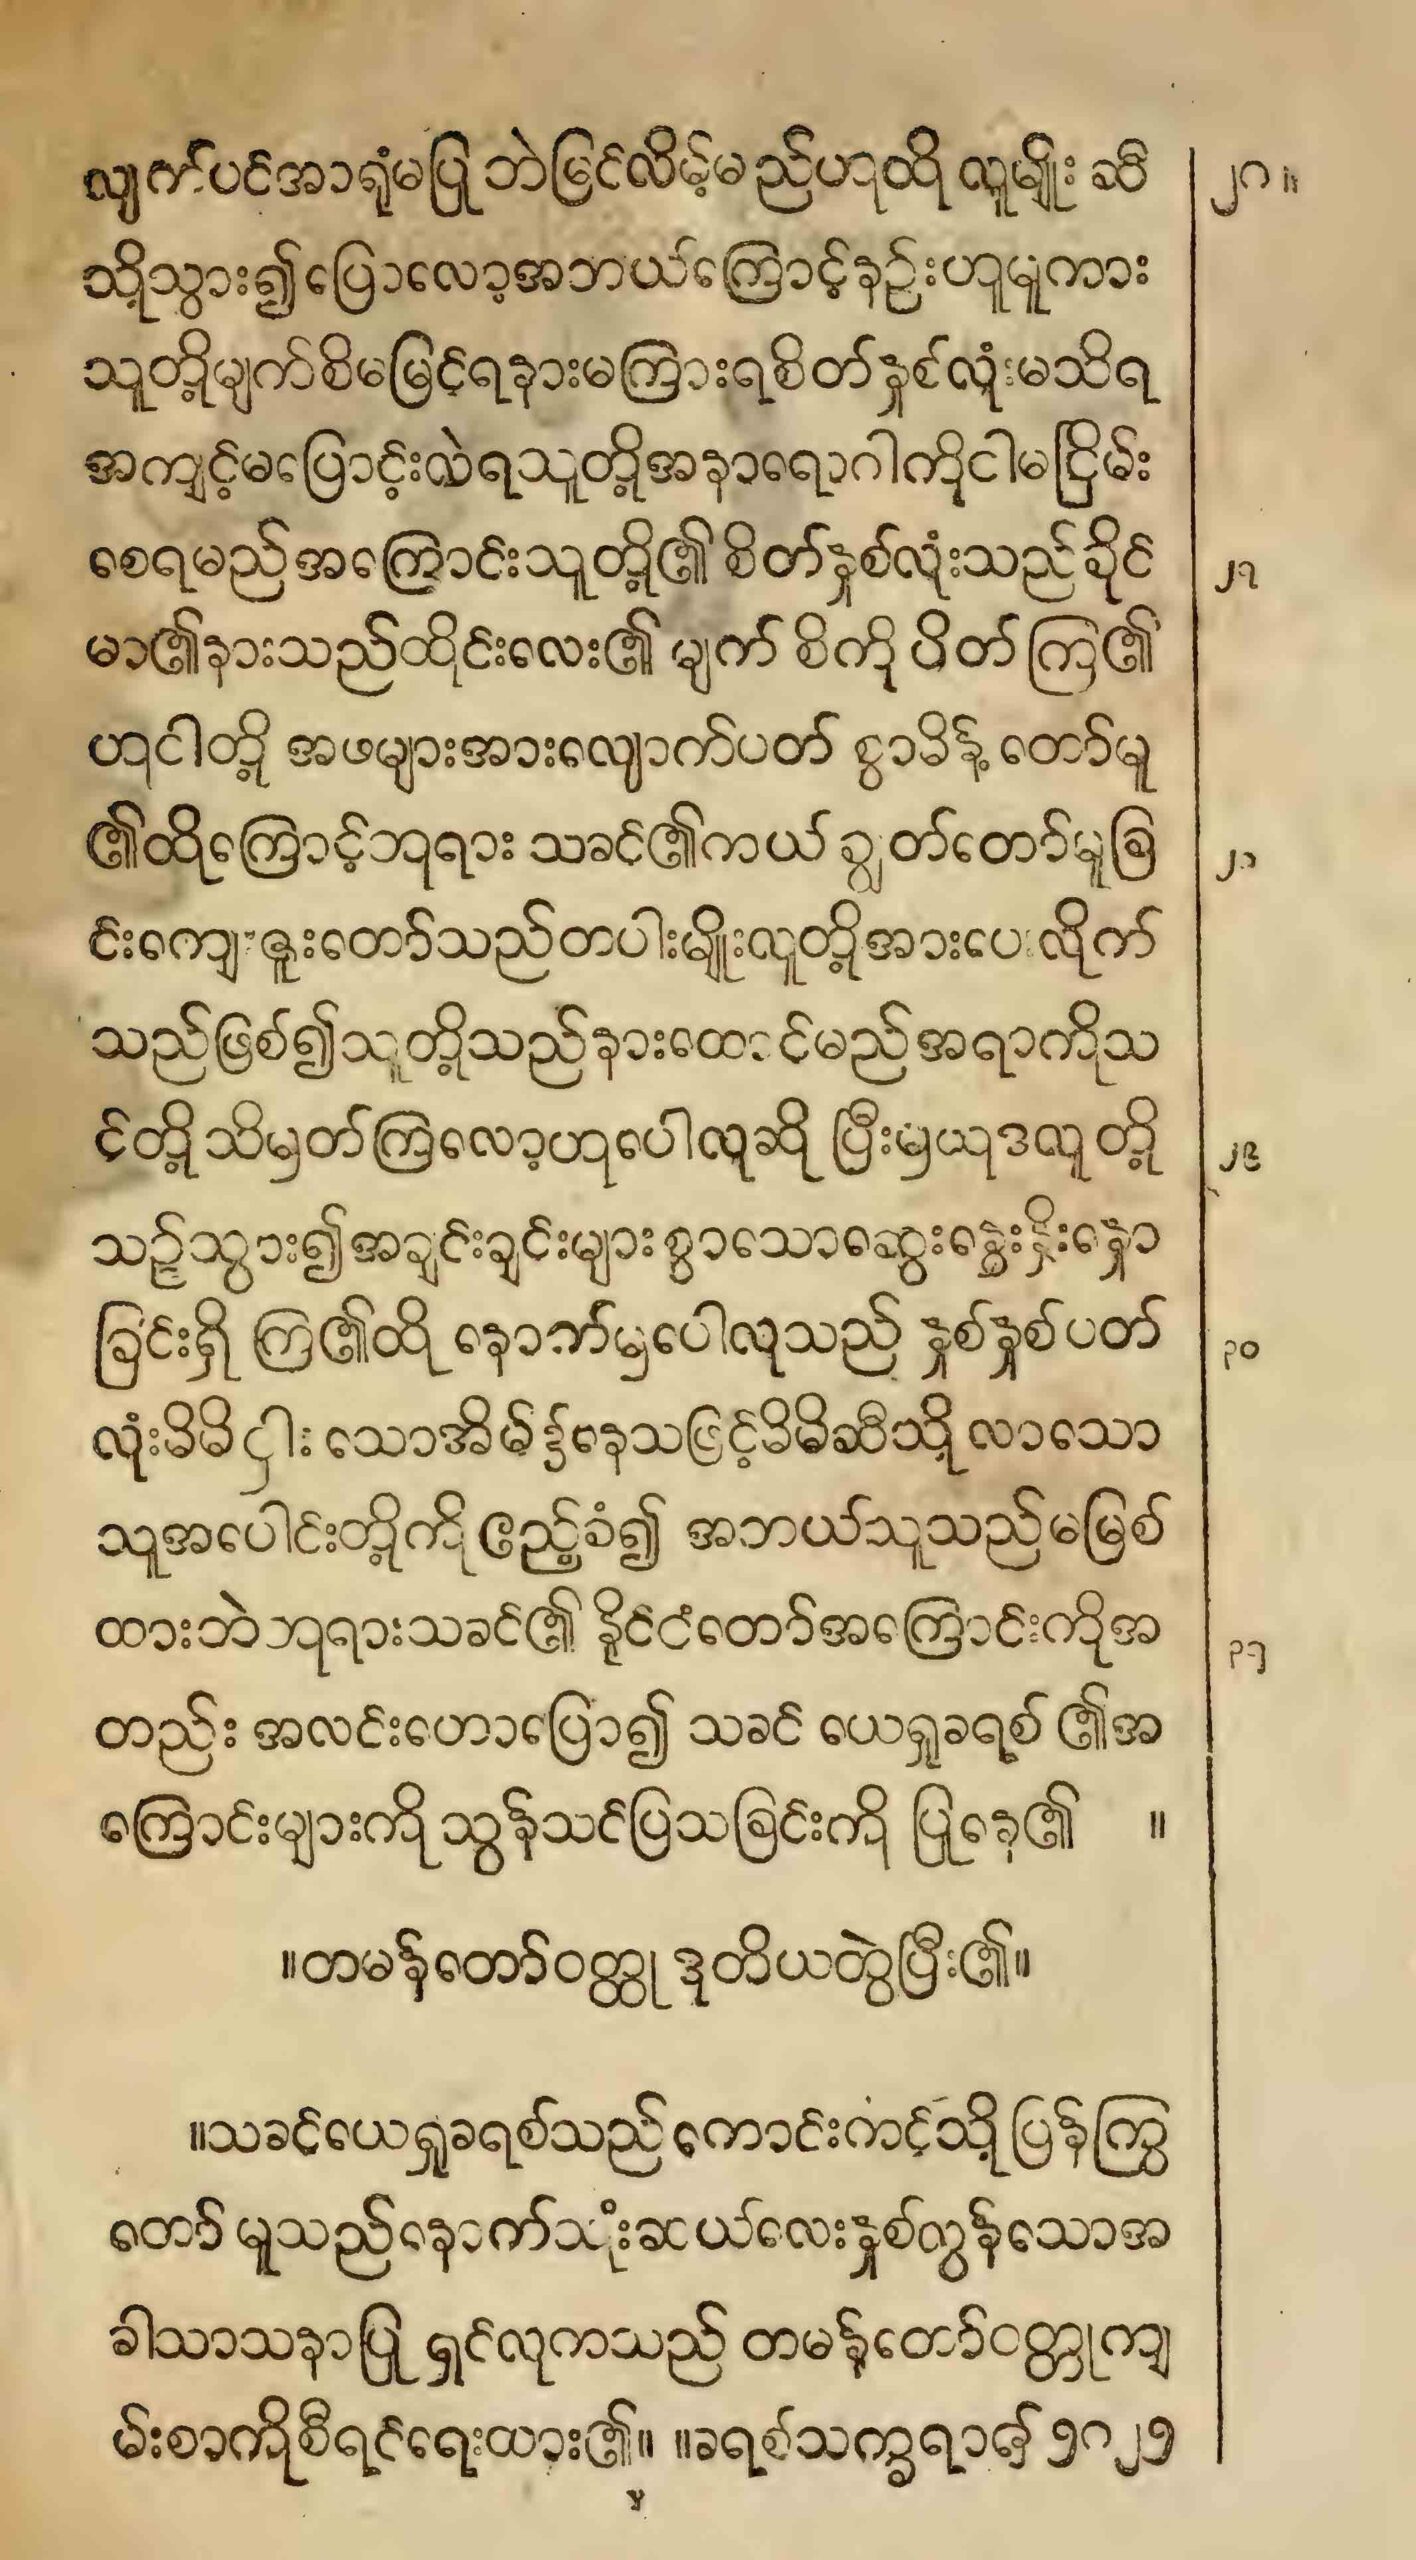 လျက်ပင်အာရုံမပြုဘဲမြင်လိမ့်မည်ဟုထိုလူမျိုးဆီ ၂၆။
သို့သွား၍ပြောလော့အဘယ်ကြောင့်နည်းဟူမူကား
သူတို့မျက်စိမမြင့်ရနားမကြားရစိတ်နှစ်လုံးမသိရ
အကျင့်မပြောင့်းလဲရသူတို့အနာရောဂါကိုငါမငြိမ်း
စေရမည်အကြောင်းသူတို့၏စိတ်နှစ်လုံးသည်ခိုင် ၂၇
မာ၏နားသည်ထိုင်းလေး၏မျက်စိကိုပိတ်ကြ၏
ဟုငါတို့အဖများအားလျောက်ပတ်စွာမိန့်တော်မူ
၏ထိုကြောင့်ဘုရားသခင်၏ကယ်ချွတ်တော်မူခြ ၂၈
င်းကျေးဇူးတော်သည်တပါးမျိုးလူတို့အားပေးလိုက်
သည်ဖြစ်၍သူတို့သည်နားထောင်မည်အရာကိုသ
င်တို့သိမှတ်ကြလော့ဟုပေါလုဆိုပြီးမှယုဒလူတို့ ၂၉
သည်သွား၍အချင်းချင်းများစွာသောဆွေးနွေးနှီးနှော
ခြင်းရှိကြ၏ထိုနောက်မှပေါလုသည်နှစ်နှစ်ပတ် ၃၀
လုံးမိမိငှါးသောအိမ်၌နေသဖြင့်မိမိဆီသို့လာသော
သူအပေါင်းတို့ကိုဧည့်ခံ၍အဘယ်သူသည်မမြစ်
ထားဘဲဘုရားသခင်၏နိုင်ငံတော်အကြောင်းကိုအ ၃၁
တည်းအလင်းဟောပြော၍သခင်ယေရှုခရစ်၏အ
ကြောင်းများကိုသွန်သင်ပြသခြင်းကိုပြုနေ့၏ ။
။တမန်တော်ဝတ္ထုဒုတိယတွဲပြီး၏။
။သခင်ယေရှုခရစ်သည်ကောင်းကင့်သို့ပြန်ကြွ
တော်မူသည်နောက်သုံးဆယ်လေးနှစ်လွန်သောအ
ခါသာသနာပြုရှင်လုကသည်တမန်တော်ဝတ္ထုကျ
မ်းစာကိုစီရင်ရေးထား၏။ ။ခရစ်သက္ခရာဇ်၌၁၈၂၅